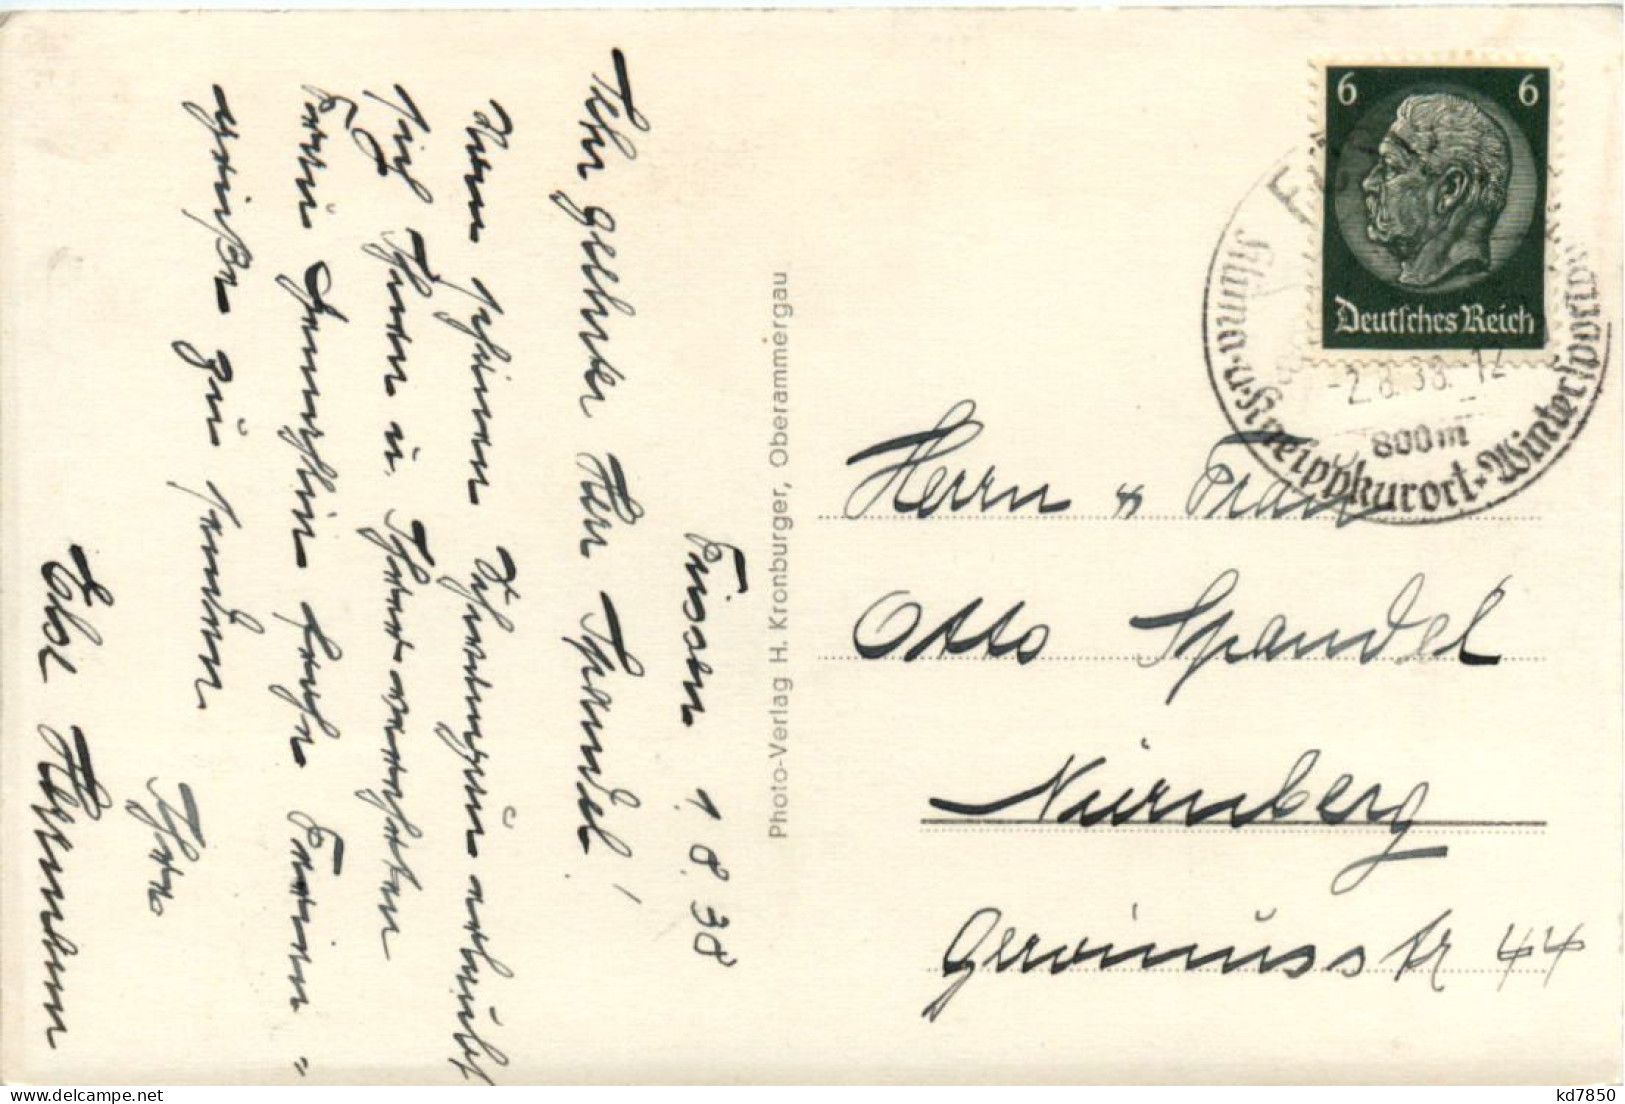 Füssen 1. 8. 38
Sehr geehrter Herr Spandel!
schönen erlaubt
sich Ihnen u. Ihrer werten
Frau Gemahlin frohe Ferien-
grüße zu senden
Ihre
Photo-Verlag H. Kronburger, Oberammergau
6 6
Deutsches Reich
-2.8.38. 12
800m
Klima- u. Kneippkurort - Wintersportplatz
Herrn & Frau
Otto Spandel
Nürnberg
Gervinusstr 44
kd7850